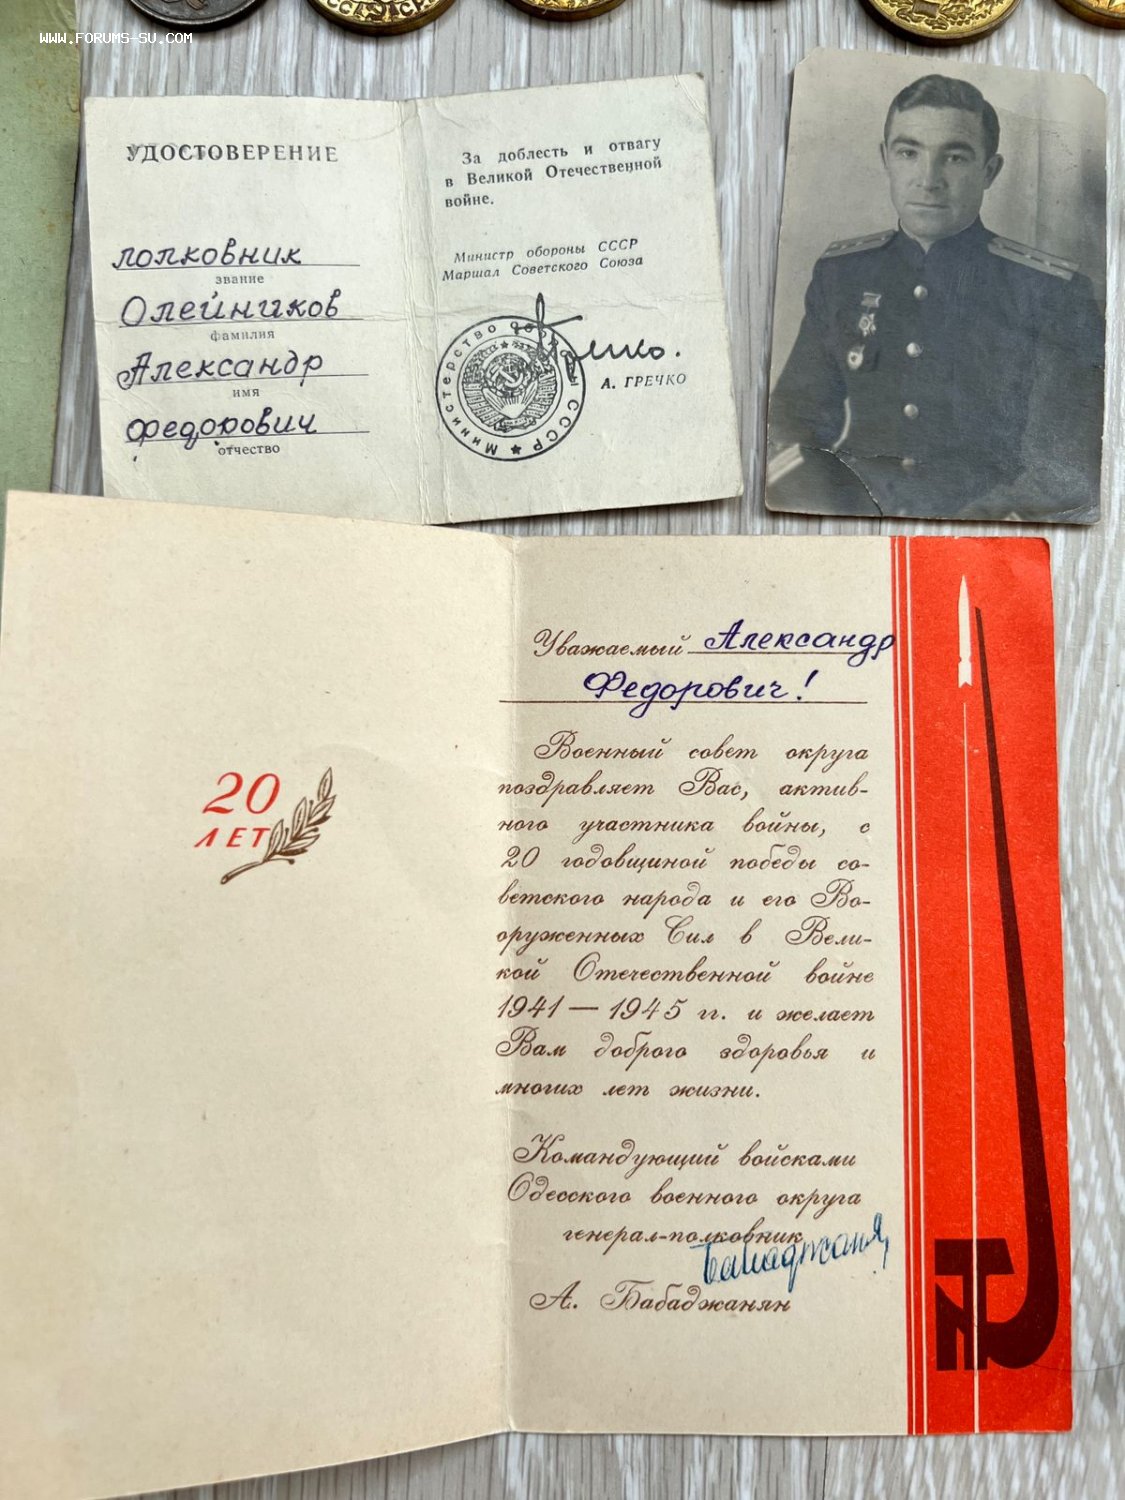 WWW.FORUMS-SU.COM
УДОСТОВЕРЕНИЕ
полковник
звание
Олейников
фамилия
Александр
имя
Федорович
отчество
За доблесть и отвагу
в Великой Отечественной
войне.
Министр обороны СССР
Маршал Советского Союза
Министерство обороны СССР
Гречко.
А. ГРЕЧКО
20
ЛЕТ
Уважаемый Александр
Федорович!
Военный совет округа
поздравляет Вас, актив-
ного участника войны, с
20 годовщиной победы со-
ветского народа и его Во-
оруженных Сил в Вели-
кой Отечественной войне
1941 — 1945 гг. и желает
Вам доброго здоровья и
многих лет жизни.
Командующий войсками
Одесского военного округа
генерал-полковник
Бабаджанян
А. Бабаджанян